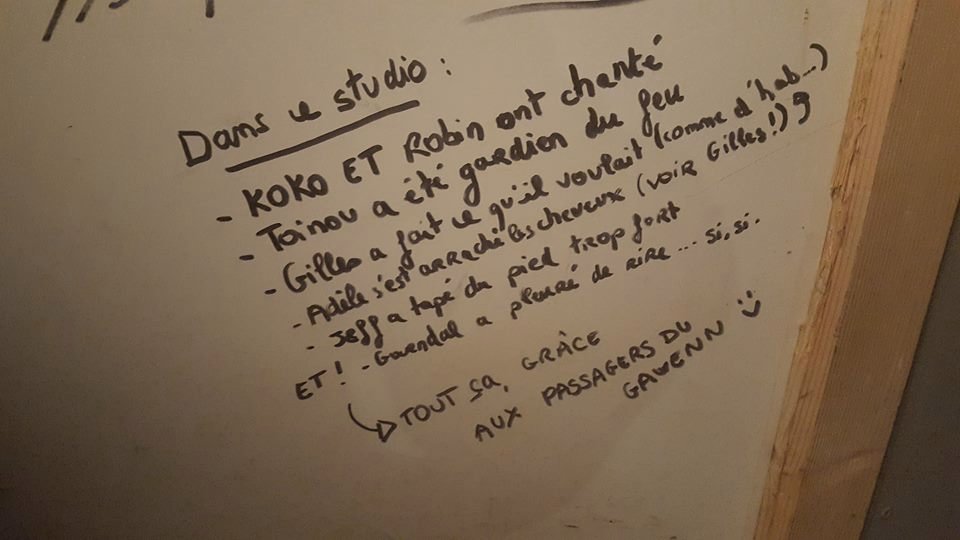 Dans le studio :
- KOKO ET Robin ont chanté
- Toinou a été gardien du feu
- Gilles a fait ce qu'il voulait (comme d'hab...)
- Adèle s'est arraché les cheveux (voir Gilles!)
- Jeff a tapé du pied trop fort
ET! - Gwendal a pleuré de rire ... si, si.
TOUT ça, GRÂCE
AUX PASSAGERS DU
GAWENN